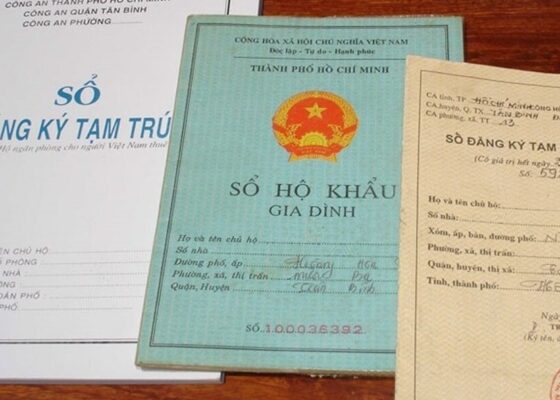 CÔNG AN THÀNH PHỐ HỒ CHÍ MINH
CÔNG AN QUẬN TÂN BÌNH
CÔNG AN PHƯỜNG
SỔ
ĐĂNG KÝ TẠM TRÚ
Hộ ngăn phòng cho người Việt Nam thuê
TÊN CHỦ HỘ
PHÒNG
NHÀ
ỜNG
DÂN PHỐ :
PHỐ
CỘNG HÒA XÃ HỘI CHỦ NGHĨA VIỆT NAM
Độc lập - Tự do - Hạnh phúc
THÀNH PHỐ HỒ CHÍ MINH
SỔ HỘ KHẨU
GIA ĐÌNH
Họ và tên chủ hộ
Số nhà
Đường phố, ấp
Phường, xã, thị trấn
Quận, Huyện Tân Bình
SỐ..100036392
CA tỉnh, TP HỒ CHÍ MINH
CA huyện, Q, TX TÂN BÌNH
CA phường, xã, TT 13
SỔ ĐĂNG KÝ TẠM
(Có giá trị hết ngày
Số: 59
Họ và tên chủ hộ:
Số nhà:
Xóm, ấp, bản, đường phố: N
Phường, xã, thị trấn:
Quận, huyện, thị xã:
Tỉnh, thành phố:
Ngày
(Ký tên,